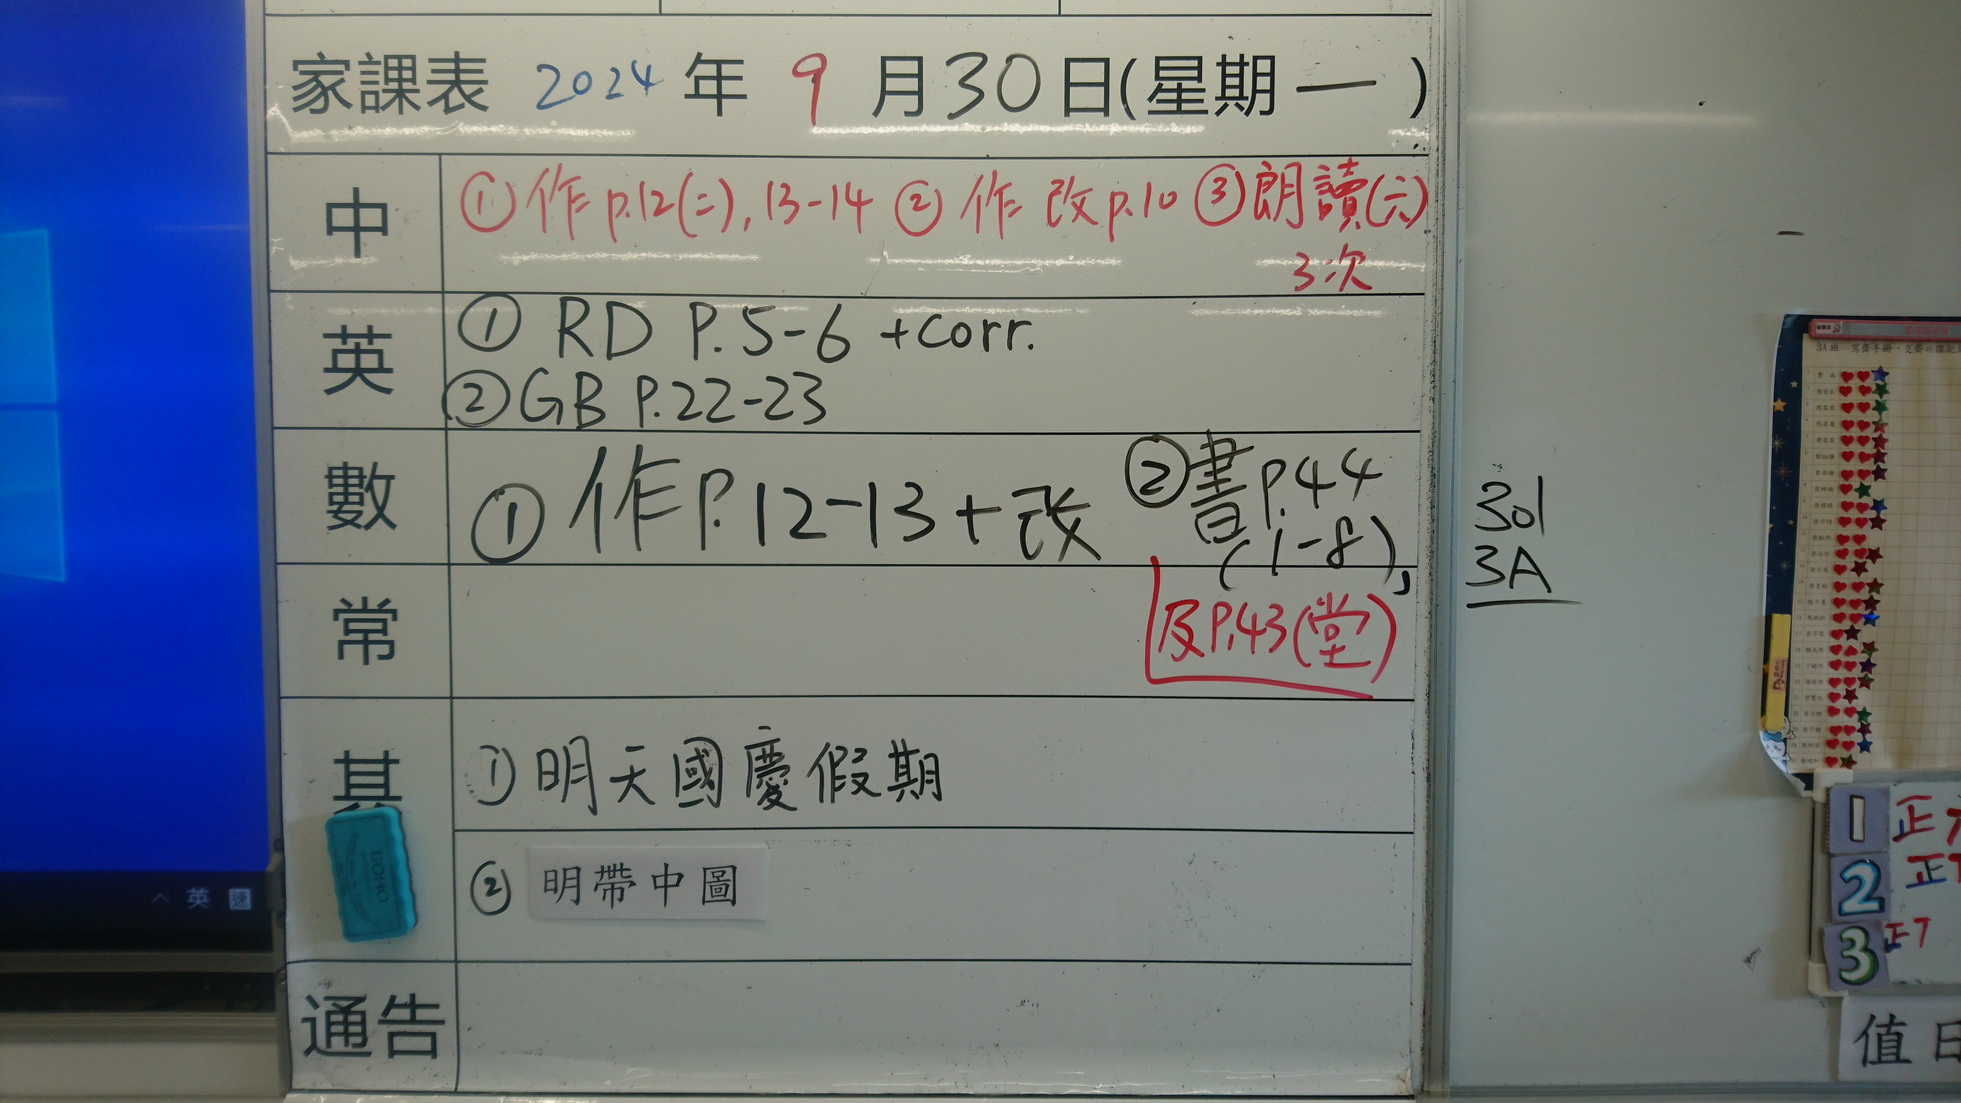 家課表 2024 年 9 月 30 日(星期一)
中
①作p.12(二), 13-14 ②作 改p.10 ③朗讀(六)
3次
英
① RD P.5-6 +corr.
② GB P.22-23
數
① 作P.12-13+改 ②書P.44
(1-8),
及P.43(堂)
常
①明天國慶假期
② 明帶中圖
通告
301
3A
BOHO
英 速
3A班
1 正
2 正T
3 正T
值日